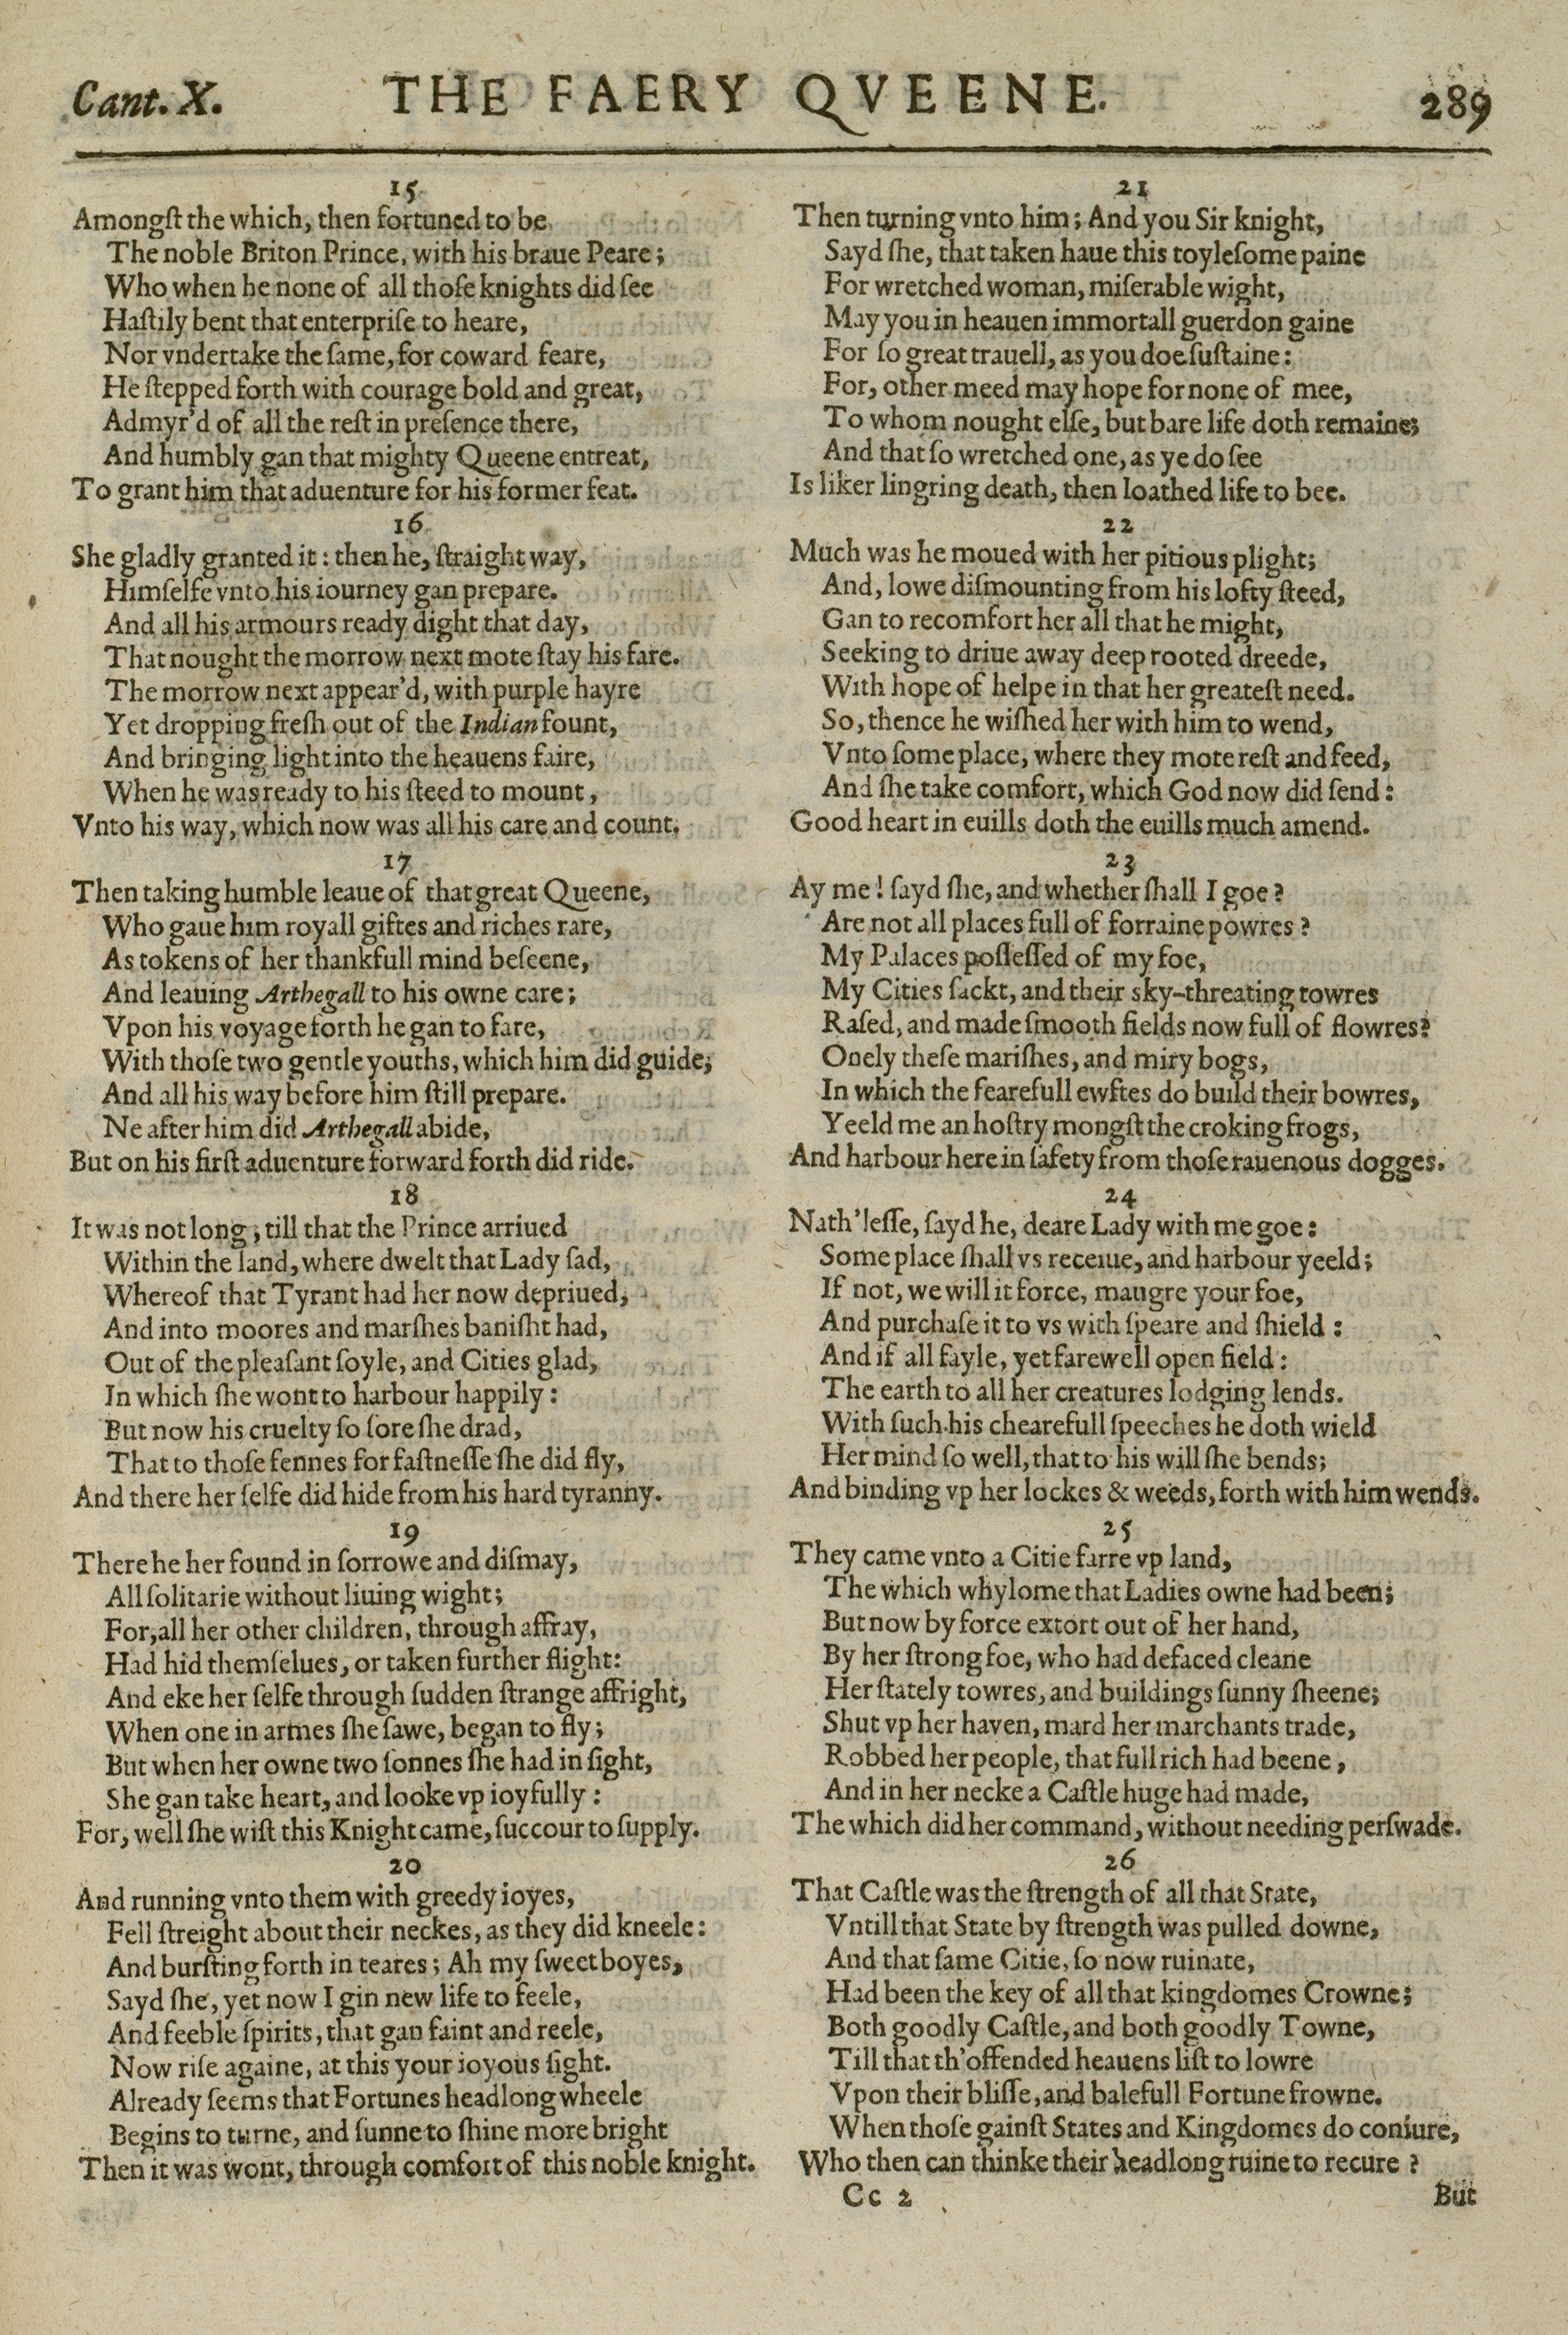 Cant. X. THE FAERY QVEENE. 289
15
Amongſt the which, then fortuned to be
The noble Briton Prince, with his braue Peare;
Who when he none of all thoſe knights did ſee
Haſtily bent that enterpriſe to heare,
Nor vndertake the ſame, for coward feare,
He ſtepped forth with courage bold and great,
Admyr'd of all the reſt in preſence there,
And humbly gan that mighty Queene entreat,
To grant him that aduenture for his former feat.
16
She gladly granted it: then he, ſtraight way,
Himſelfe vnto his iourney gan prepare.
And all his armours ready dight that day,
That nought the morrow next mote ſtay his fare.
The morrow next appear'd, with purple hayre
Yet dropping freſh out of the Indian fount,
And bringing light into the heauens faire,
When he was ready to his ſteed to mount,
Vnto his way, which now was all his care and count.
17
Then taking humble leaue of that great Queene,
Who gaue him royall giftes and riches rare,
As tokens of her thankfull mind beſeene,
And leauing Arthegall to his owne care;
Vpon his voyage forth he gan to fare,
With thoſe two gentle youths, which him did guide;
And all his way before him ſtill prepare.
Ne after him did Arthegall abide,
But on his firſt aduenture forward forth did ride.
18
It was not long, till that the Prince arriued
Within the land, where dwelt that Lady ſad,
Whereof that Tyrant had her now depriued,
And into moores and marſhes baniſht had,
Out of the pleaſant ſoyle, and Cities glad,
In which ſhe wont to harbour happily:
But now his cruelty ſo ſore ſhe drad,
That to thoſe fennes for faſtneſſe ſhe did fly,
And there her ſelfe did hide from his hard tyranny.
19
There he her found in ſorrowe and diſmay,
All ſolitarie without liuing wight;
For, all her other children, through affray,
Had hid themſelues, or taken further flight:
And eke her ſelfe through ſudden ſtrange affright,
When one in armes ſhe ſawe, began to fly;
But when her owne two ſonnes ſhe had in ſight,
She gan take heart, and looke vp ioyfully:
For, well ſhe wiſt this Knight came, ſuccour to ſupply.
20
And running vnto them with greedy ioyes,
Fell ſtreight about their neckes, as they did kneele:
And burſting forth in teares; Ah my ſweet boyes,
Sayd ſhe, yet now I gin new life to feele,
And feeble ſpirits, that gan faint and reele,
Now riſe againe, at this your ioyous ſight.
Already ſeems that Fortunes headlong wheele
Begins to turne, and ſunne to ſhine more bright
Then it was wont, through comfort of this noble knight.
21
Then turning vnto him; And you Sir knight,
Sayd ſhe, that taken haue this toyleſome paine
For wretched woman, miſerable wight,
May you in heauen immortall guerdon gaine
For ſo great trauell, as you doe ſuſtaine:
For, other meed may hope for none of mee,
To whom nought elſe, but bare life doth remaine;
And that ſo wretched one, as ye do ſee
Is liker lingring death, then loathed life to bee.
22
Much was he moued with her pitious plight;
And, lowe diſmounting from his lofty ſteed,
Gan to recomfort her all that he might,
Seeking to driue away deep rooted dreede,
With hope of helpe in that her greateſt need.
So, thence he wiſhed her with him to wend,
Vnto ſome place, where they mote reſt and feed,
And ſhe take comfort, which God now did ſend:
Good heart in euills doth the euills much amend.
23
Ay me! ſayd ſhe, and whether ſhall I goe?
Are not all places full of forraine powres?
My Palaces poſſeſſed of my foe,
My Cities ſackt, and their sky-threating towres
Raſed, and made ſmooth fields now full of flowres?
Onely theſe mariſhes, and miry bogs,
In which the fearefull ewftes do build their bowres,
Yeeld me an hoſtry mongſt the croking frogs,
And harbour here in ſafety from thoſe rauenous dogges.
24
Nath'leſſe, ſayd he, deare Lady with me goe:
Some place ſhall vs receiue, and harbour yeeld;
If not, we will it force, maugre your foe,
And purchaſe it to vs with ſpeare and ſhield:
And if all fayle, yet farewell open field:
The earth to all her creatures lodging lends.
With ſuch his chearefull ſpeeches he doth wield
Her mind ſo well, that to his will ſhe bends;
And binding vp her lockes & weeds, forth with him wends.
25
They came vnto a Citie farre vp land,
The which whylome that Ladies owne had been;
But now by force extort out of her hand,
By her ſtrong foe, who had defaced cleane
Her ſtately towres, and buildings ſunny ſheene;
Shut vp her haven, mard her marchants trade,
Robbed her people, that full rich had beene,
And in her necke a Caſtle huge had made,
The which did her command, without needing perſwade.
26
That Caſtle was the ſtrength of all that State,
Vntill that State by ſtrength was pulled downe,
And that ſame Citie, ſo now ruinate,
Had been the key of all that kingdomes Crowne;
Both goodly Caſtle, and both goodly Towne,
Till that th'offended heauens liſt to lowre
Vpon their bliſſe, and balefull Fortune frowne.
When thoſe gainſt States and Kingdomes do coniure,
Who then can thinke their headlong ruine to recure?
Cc 2 But